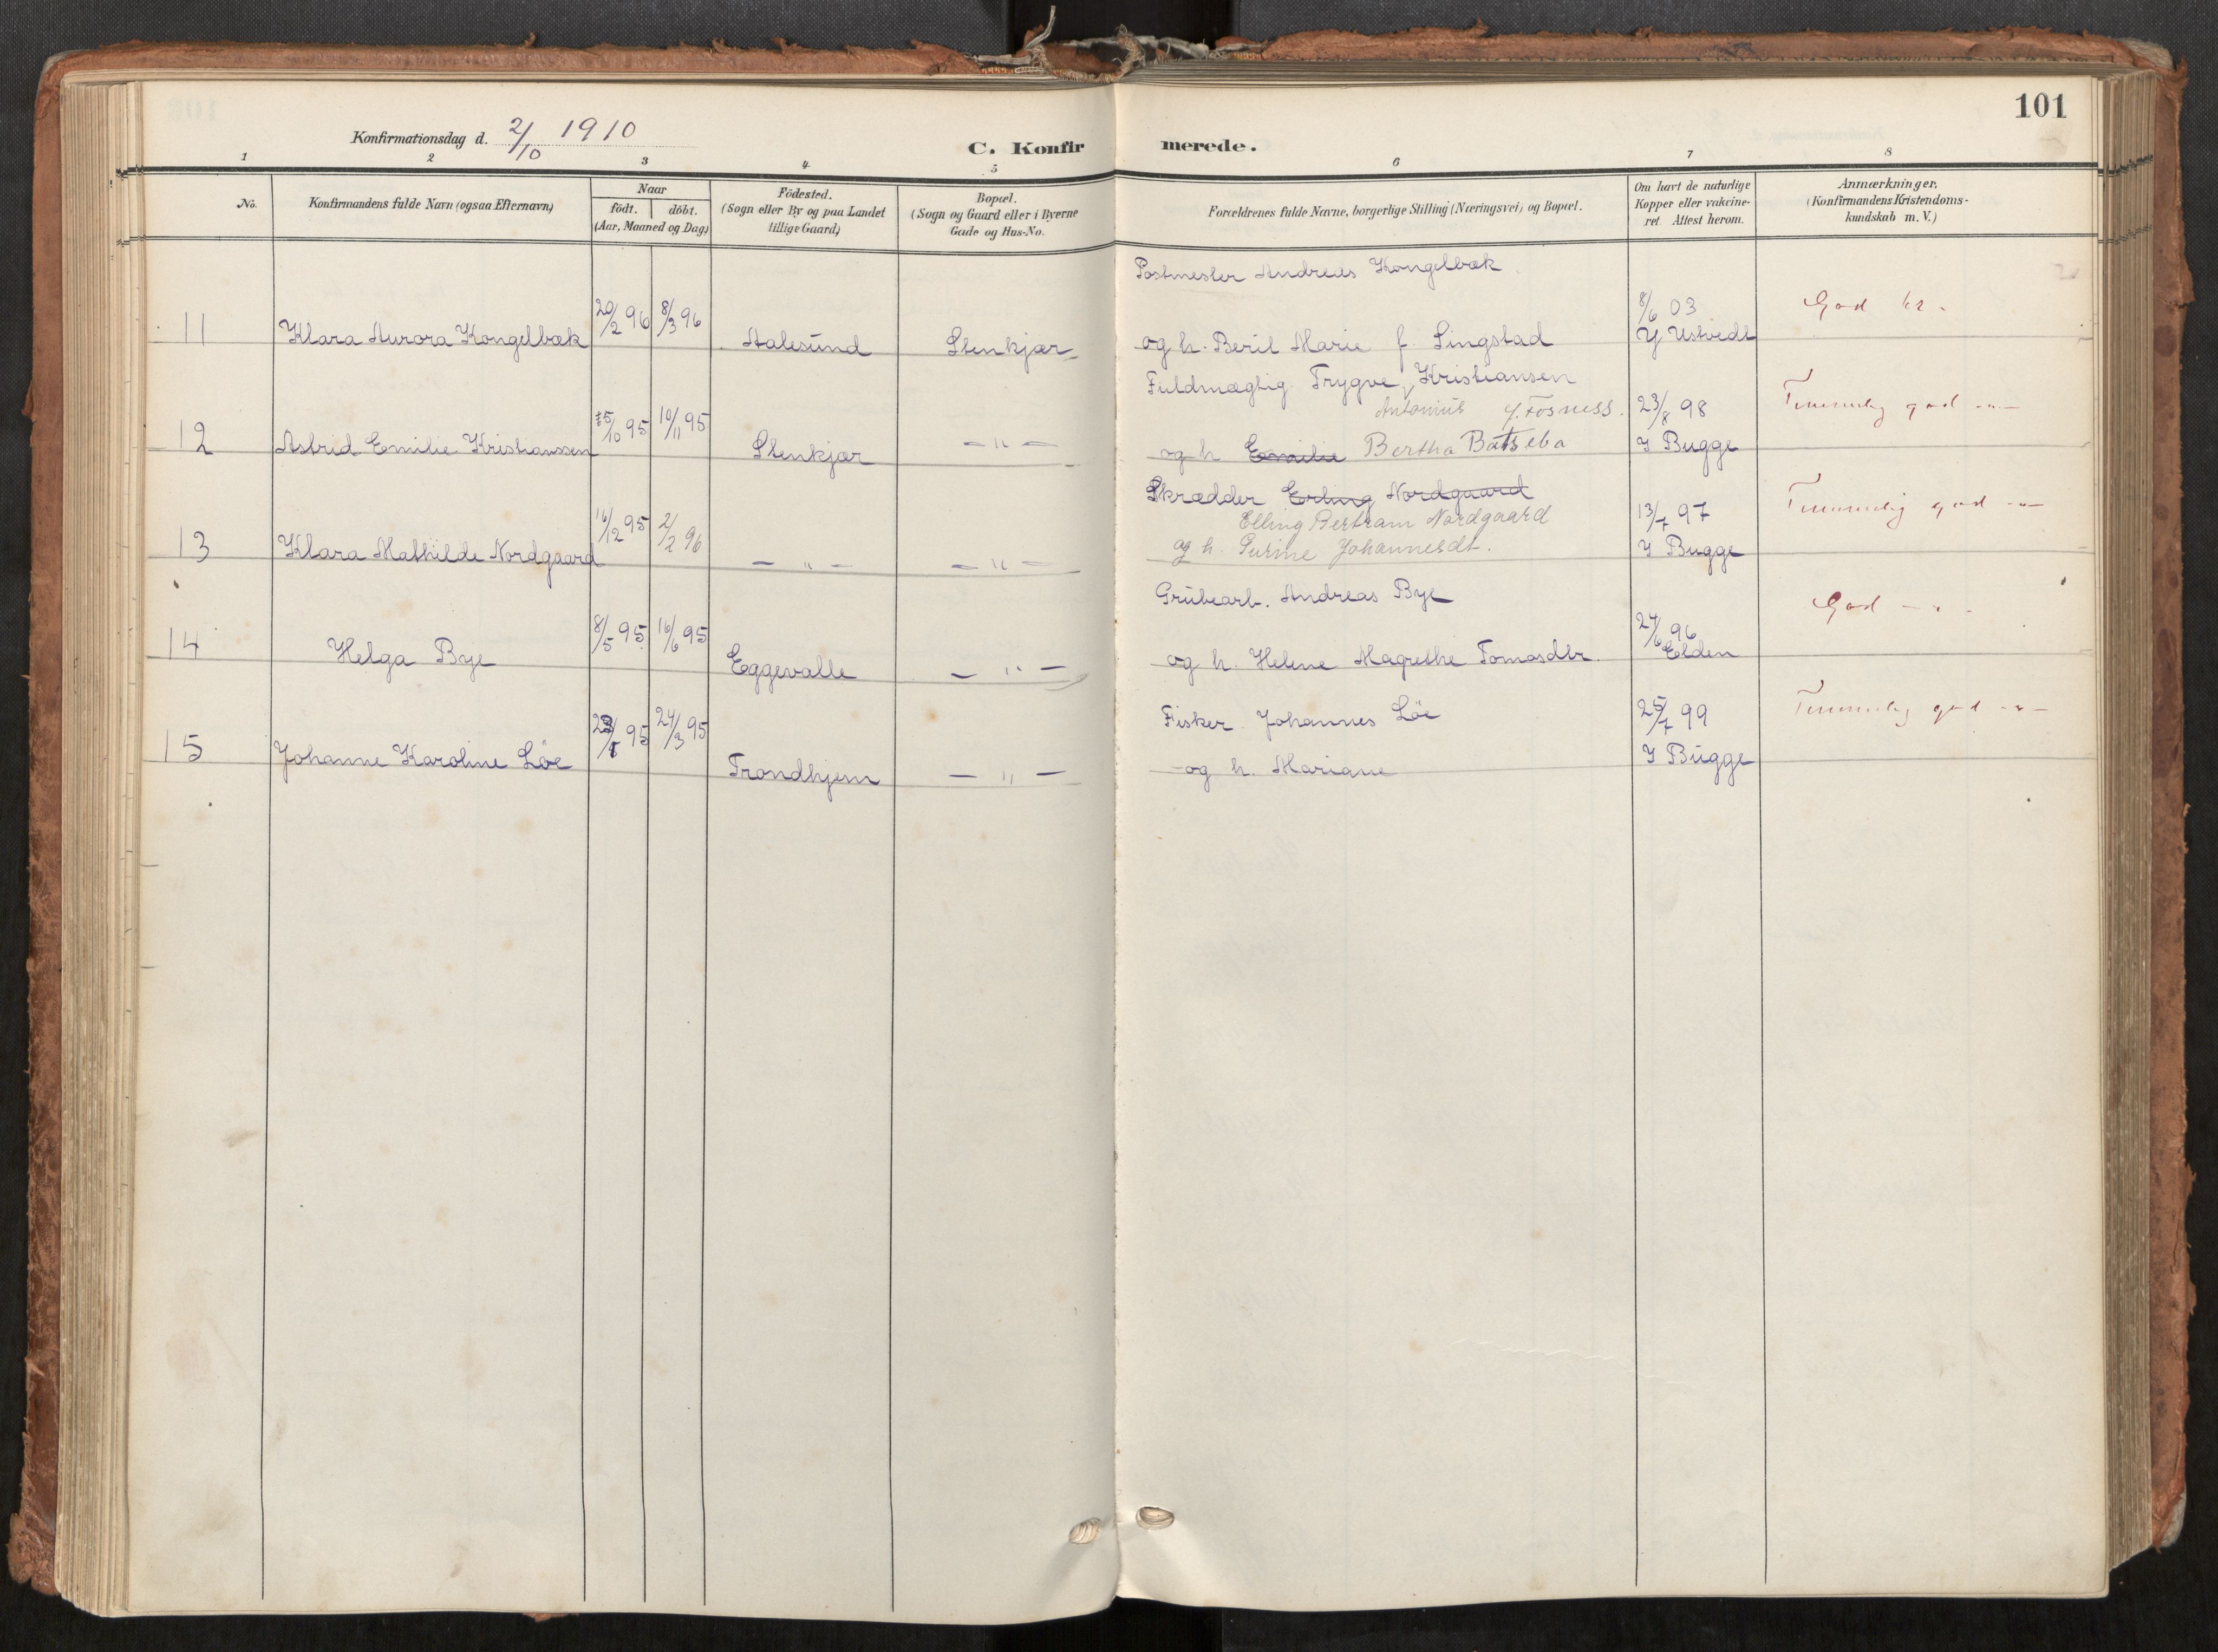 101
Konfirmationsdag d. 2/10 1910
C. Konfirmerede.
1 2 3 4 5 6 7 8
No.
Konfirmandens fulde Navn (ogsaa Efternavn)
Naar
födt. döbt.
(Aar, Maaned og Dag)
Födested.
(Sogn eller By og paa Landet
tillige Gaard)
Bopæl.
(Sogn og Gaard eller i Byerne
Gade og Hus-No.
Forældrenes fulde Navne, borgerlige Stilling (Næringsvei) og Bopæl.
Om havt de naturlige
Kopper eller vakcine-
ret. Attest herom.
Anmærkninger.
(Konfirmandens Kristendoms-
kundskab m. V.)
Postmester Andreas Kongelbæk
11 Klara Aurora Kongelbæk 20/2 96 8/3 96 Aalesund Stenkjær og h. Beril Marie f. Singstad
8/6 03
Y Ustvedt
God kr.
Fuldmægtig Trygve Kristiansen
Antonius f. Fosness.
12 Astrid Emilie Kristianssen 5/10 95 10/11 95 Stenkjær — " — og h Emilie Bertha Batseba
23/8 98
I Bugge
Temmelig god -"-
Skrædder Erling Nordgaard
Elling Bertram Nordgaard
13 Klara Mathilde Nordgaard 16/12 95 2/2 96 — " — — " — og h. Gurine Johannesdt.
13/7 97
I Bugge
Temmelig god -"-
Grubearb. Andreas Bye
14 Helga Bye 8/5 95 16/6 95 Eggevalle — " — og h. Helene Magrethe Tomasdtr.
24/6 96
Elden
God - " -
Fisker Johannes Löe
15 Johanne Karoline Löe 95 24/3 95 Trondhjem — " — og h. Mariane
25/7 99
I Bugge
Temmelig god -"-